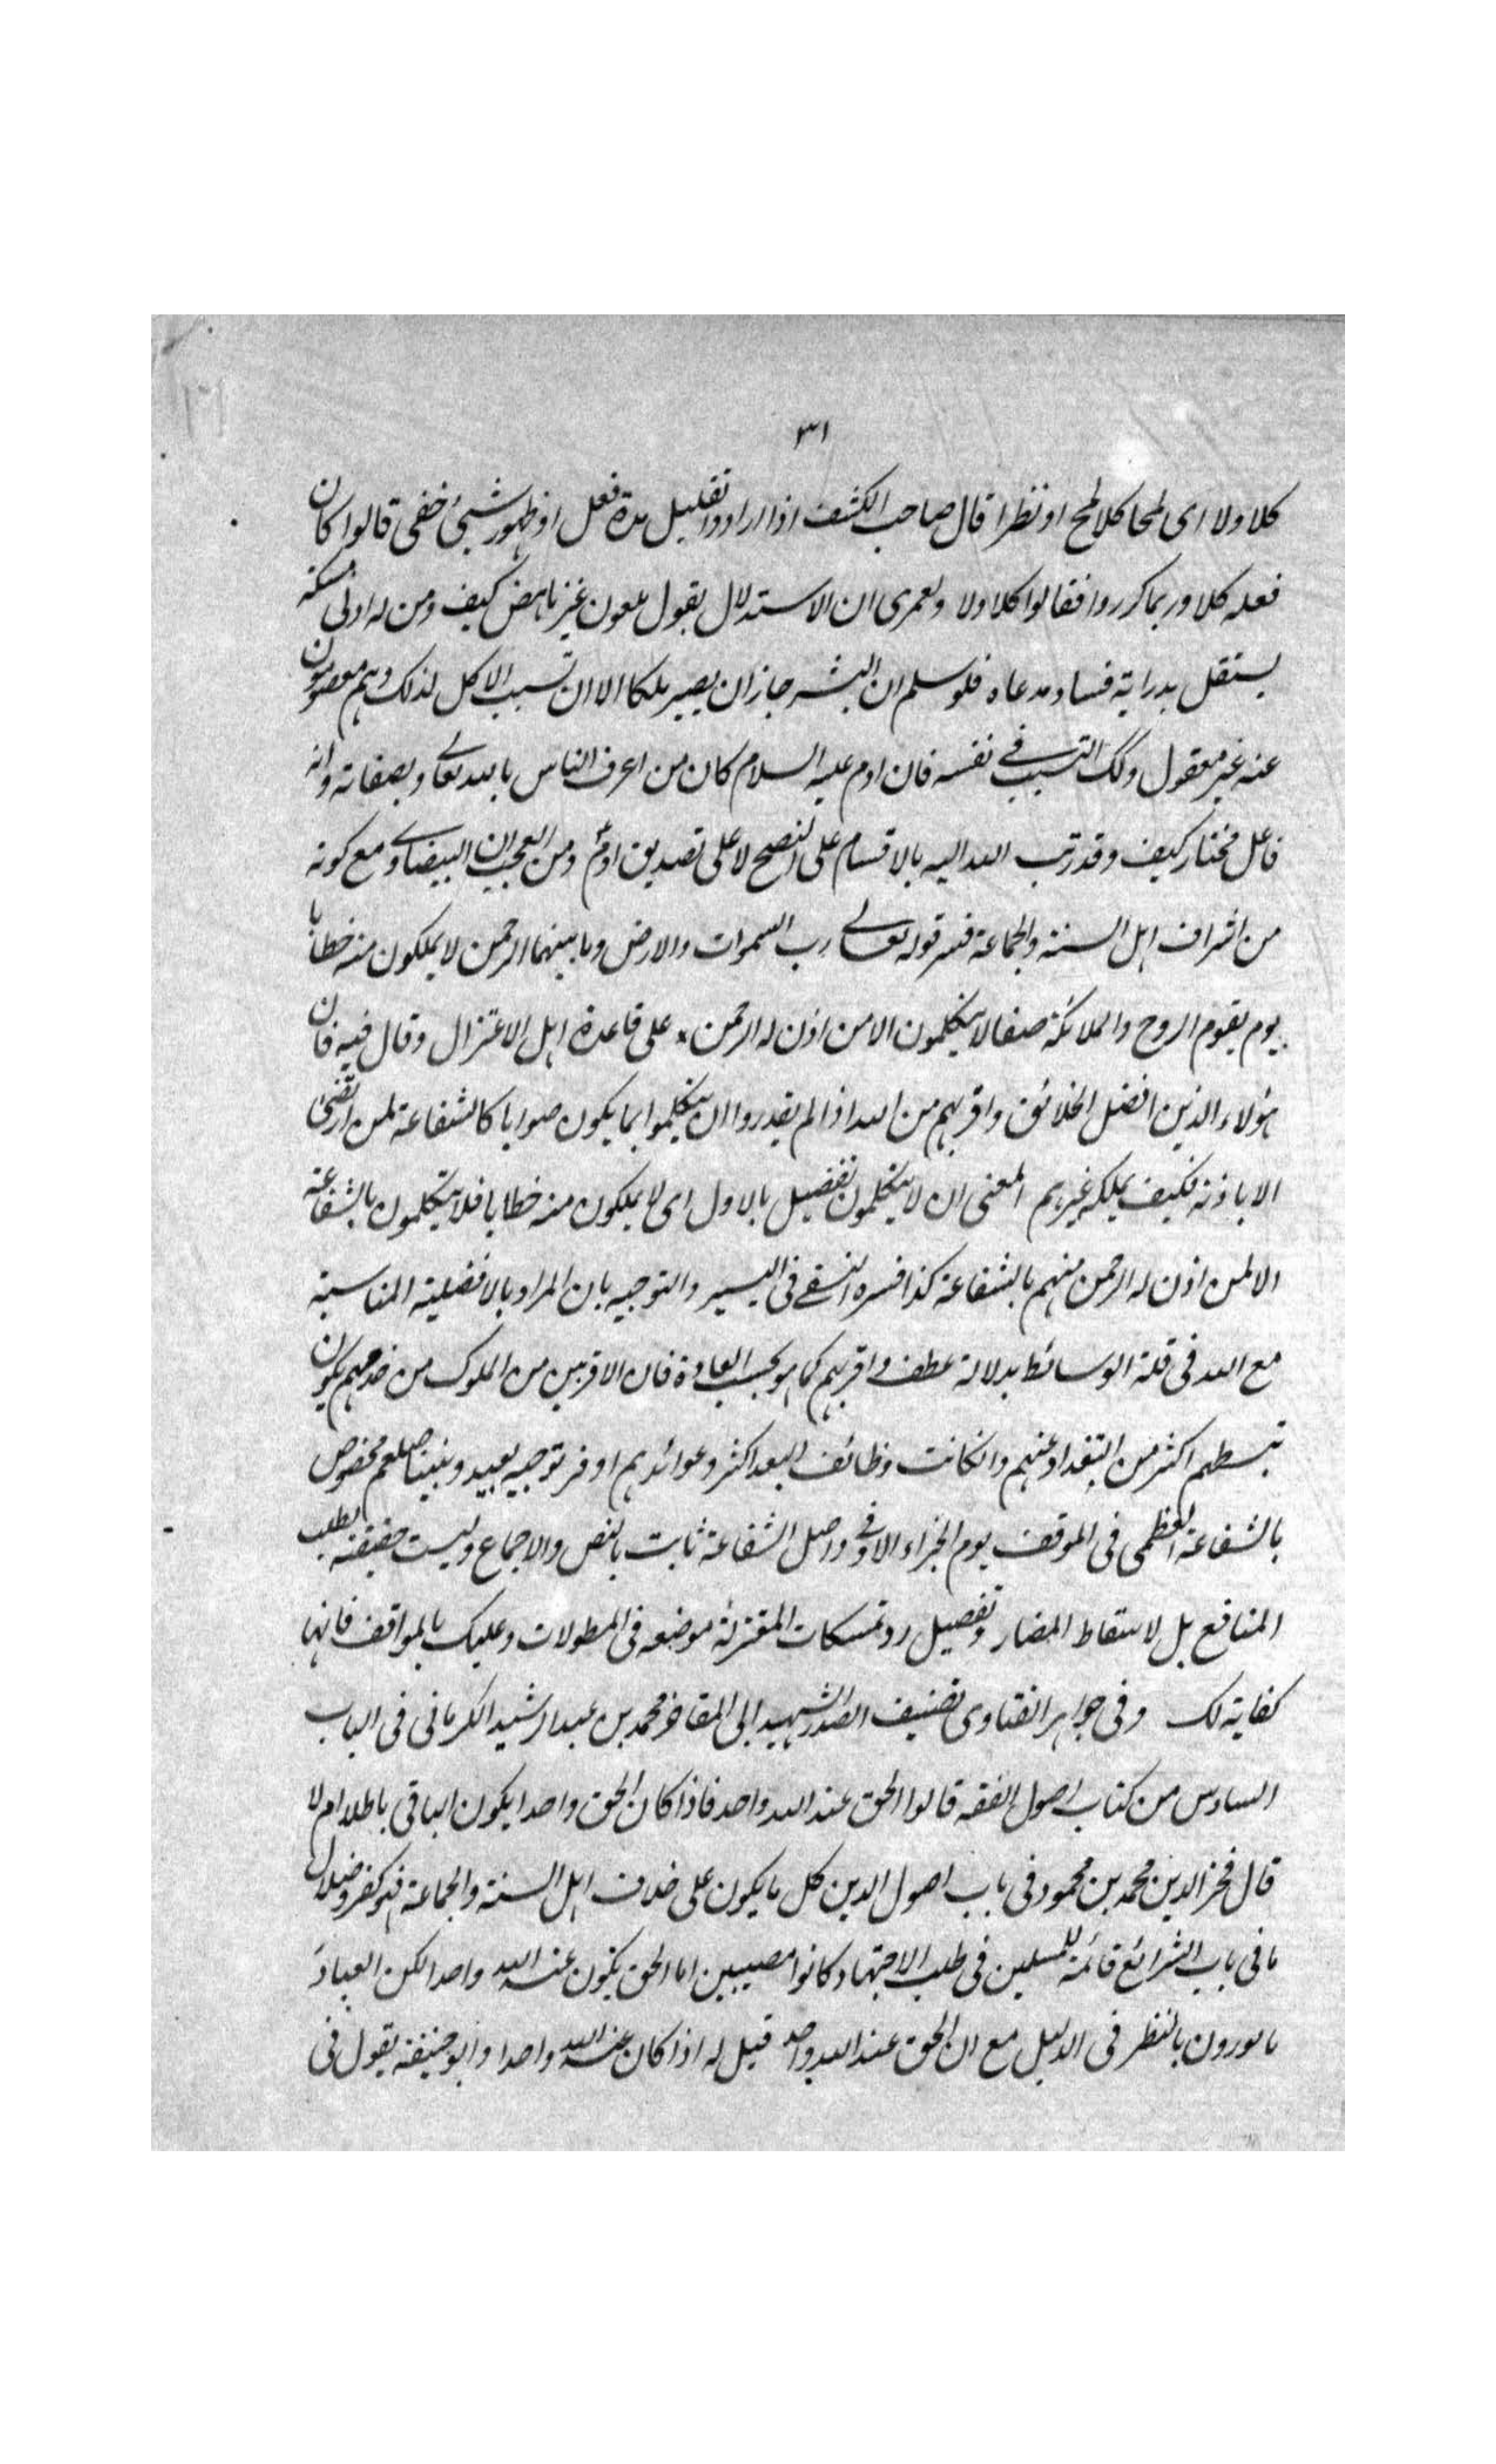 ٣١
كلا ولا اى لمحا كلا لمح او نظرا قال صاحب الكشف اذا ارادوا تقليل مدة فعل او ظهور شيئ خفى قالوا كان
فعله كلا وربما كرروا فقالوا كلا ولا ولعمرى ان الاستدلال بقول ملعون غير ناهض كيف ومن له ادنى مسكة
يستقل بدراية فساد مدعاه فلو سلم ان البشر جاز ان يصير ملكا الا ان تسبب الاكل لذلك وهم معصومون
عنه غير معقول وكك التسبب فى نفسه فان ادم عليه السلام كان من اعرف الناس بالله تعالى وبصفاته وانه
فاعل مختار كيف وقد رتب الله اليه بالاقسام على النصح لا على تصديق ادم ومن العجب ان البيضاوى مع كونه
من اشراف اهل السنة والجماعة فسر قوله تعالى رب السموات والارض وما بينهما الرحمن لا يملكون منه خطابا
يوم يقوم الروح والملائكة صفا لا يتكلمون الا من اذن له الرحمن على قاعدة اهل الاعتزال وقال فيه فان
هؤلاء الذين افضل الخلائق واقربهم من الله اذا لم يقدروا ان يتكلموا بما يكون صوابا كالشفاعة لمن ارتضى
الا باذنه فكيف يملكه غيرهم المعنى ان لا يتكلمون تفضيل بالاول اى لا يملكون منه خطابا فلا يتكلمون بالشفاعة
الا لمن اذن له الرحمن منهم بالشفاعة كذا فسره النسفى فى التيسير والتوجيه بان المراد بالافضلية المناسبة
مع الله فى قلة الوسائط بدلالة عطف واقربهم كما هو بحسب العادة فان الاقربين من الملوك من خدمهم يكون
تبسطهم اكثر من البعداء عنهم وانكانت وظائف البعد اكثر وعوائدهم اوفر توجيه بعيد ونبينا صلعم مخصوص
بالشفاعة العظمى فى الموقف يوم الجزاء الاوفى واصل الشفاعة ثابت بالنص والاجماع وليست حقيقته لطلب
المنافع بل لاسقاط المضار وتفصيل رد تمسكات المعتزلة موضعه فى المطولات وعليك بالمواقف فانها
كفاية لك وفى جواهر الفتاوى تصنيف الصدر الشهيد ابى المفاخر محمد بن عبد الرشيد الكرمانى فى الباب
السادس من كتاب اصول الفقه قالوا الحق عند الله واحد فاذا كان الحق واحدا يكون الباقى باطلا ام لا
قال فخر الدين محمد بن محمود فى باب اصول الدين كل ما يكون على خلاف اهل السنة والجماعة فهو كفر وضلال
ما فى باب الشرائع فائمة المسلمين فى طلب الاجتهاد كانوا مصيبين اما الحق يكون عند الله واحدا لكن العباد
مامورون بالنظر فى الدليل مع ان الحق عند الله واحد قيل له اذا كان عند الله واحدا وابو حنيفة يقول فى